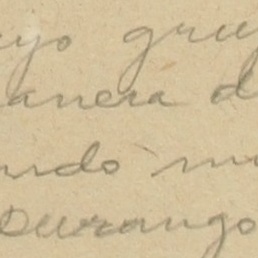 uyo gru
anera d
ndó mu
Durango